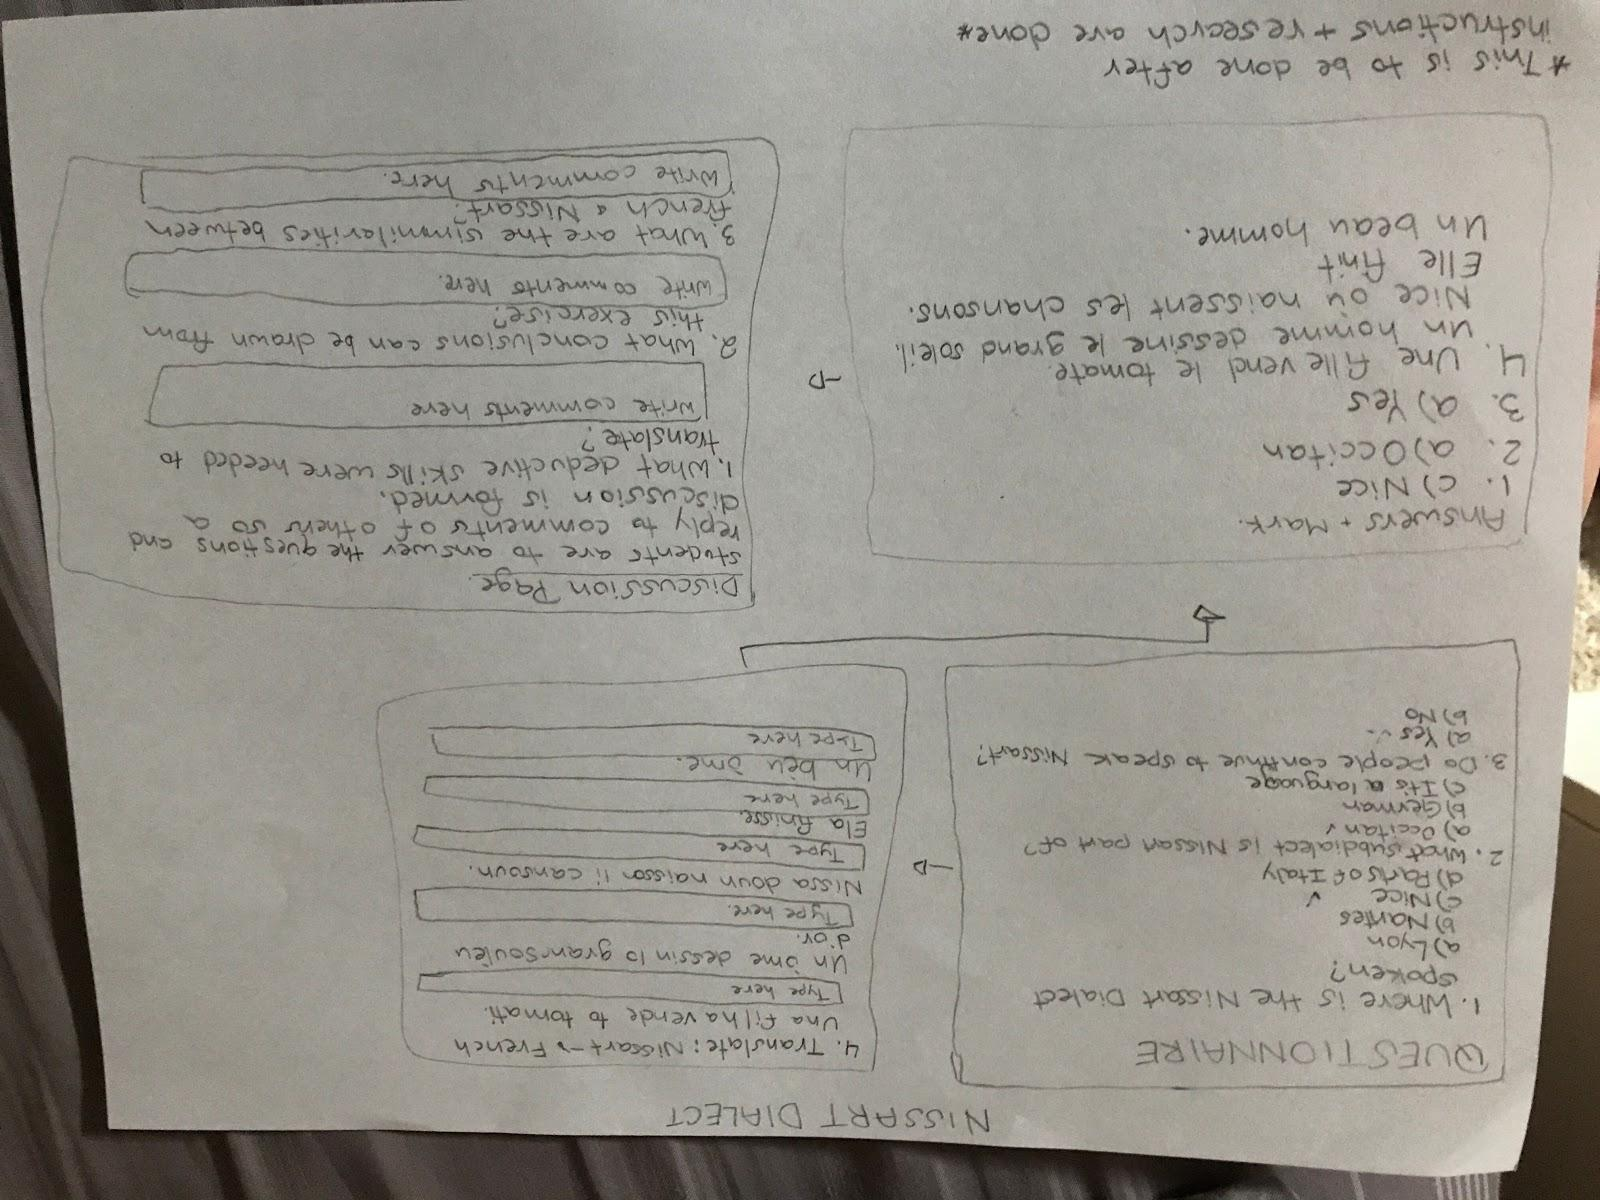 NISSART DIALECT
QUESTIONNAIRE
1. Where is the Nissart Dialect
spoken?
a) Lyon
b) Nantes
c) Nice ✓
d) Parts of Italy
2. What subdialect is Nissart part of?
a) Occitan ✓
b) German
c) It's a language
3. Do people continue to speak Nissart?
a) Yes ✓
b) No
4. Translate: Nissart → French
Una filha vende to tomati.
Type here
Un ome dessin lo gran souleu
d'or.
Type here.
Nissa doun naisson li cansoun.
Type here
Ela finisse.
Type here
Un bèu ome.
Type here
Answers + Mark.
1. c) Nice
2. a) Occitan
3. a) Yes
4. Une fille vend le tomate.
Un homme dessine le grand soleil.
Nice où naissent les chansons.
Elle finit
Un beau homme.
Discussion Page.
Students are to answer the questions and
reply to comments of others so a
discussion is formed.
1. What deductive skills were needed to
translate?
Write comments here
2. What conclusions can be drawn from
this exercise?
Write comments here.
3. What are the simmilarities between
French & Nissart?
Write comments here.
*This is to be done after
instructions + research are done*